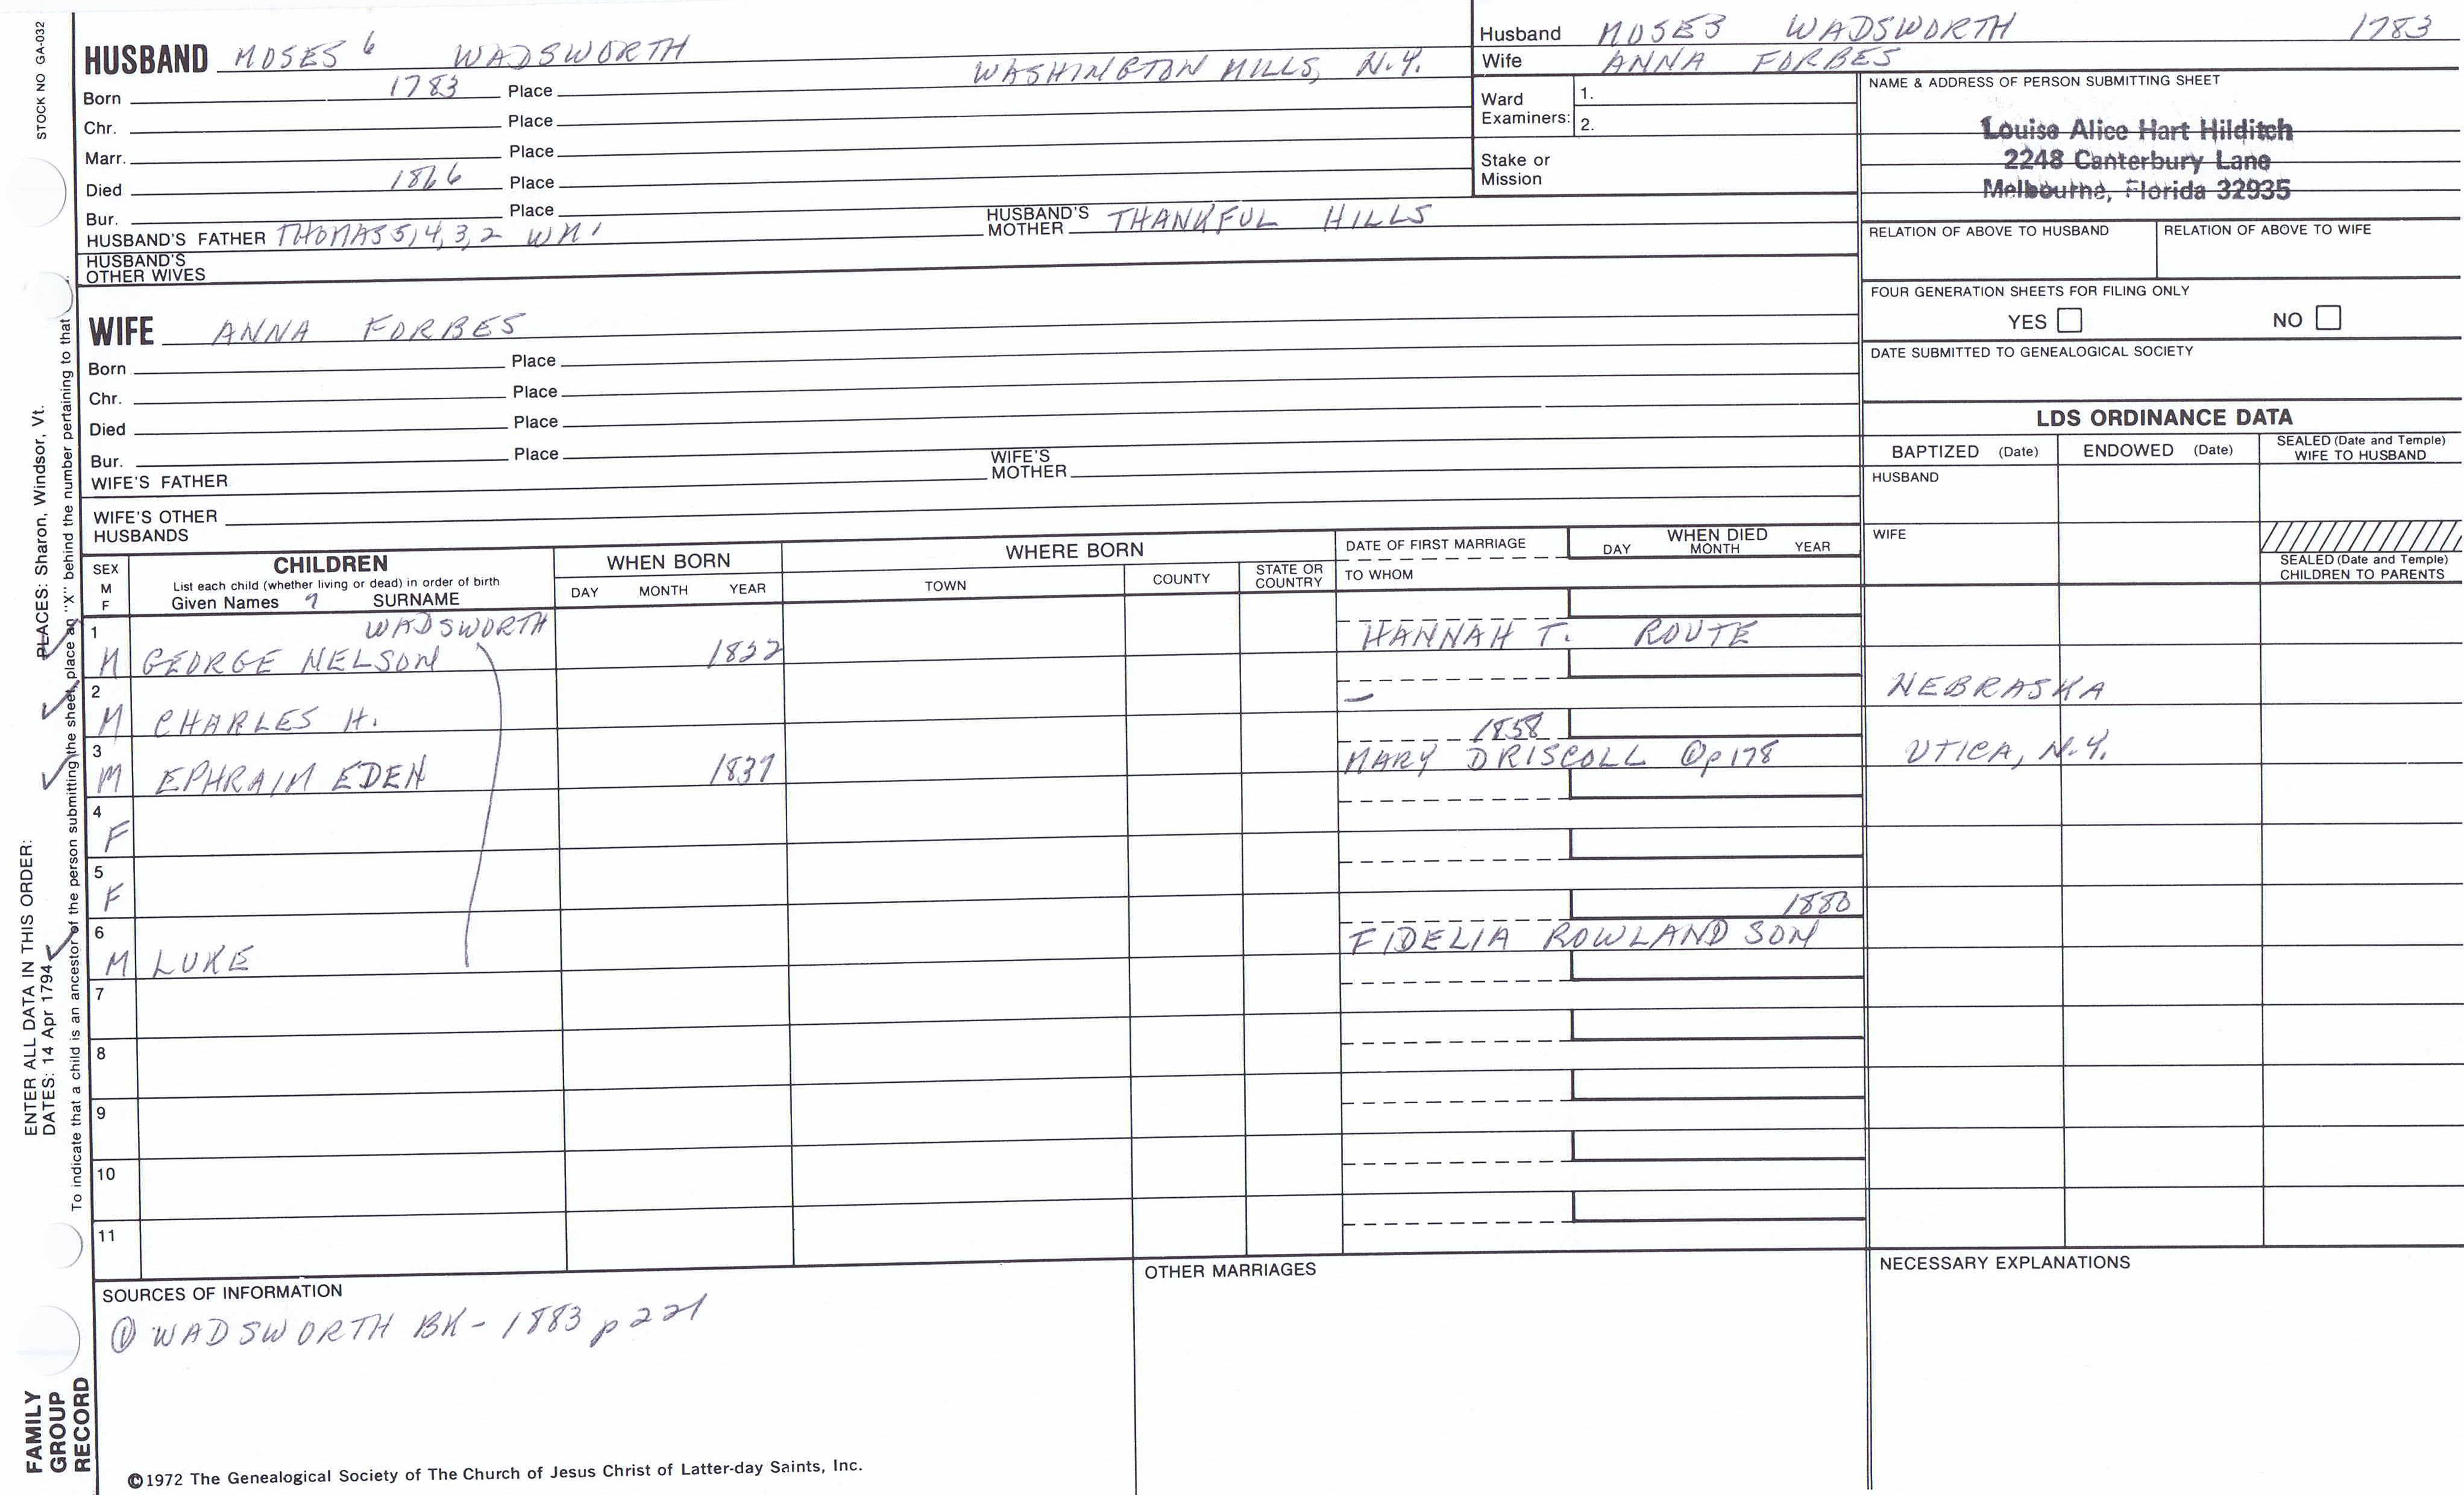 STOCK NO GA-032
HUSBAND MOSES 6 WADSWORTH WASHINGTON MILLS, N.Y.
Born 1783 Place
Chr. Place
Marr. Place
Died 1866 Place
Bur. Place
HUSBAND'S FATHER THOMAS 5,4,3,2 WM 1 HUSBAND'S MOTHER THANKFUL HILLS
HUSBAND'S OTHER WIVES
WIFE ANNA FORBES
Born Place
Chr. Place
Died Place
Bur. Place
WIFE'S FATHER WIFE'S MOTHER
WIFE'S OTHER HUSBANDS
Husband MOSES WADSWORTH 1783
Wife ANNA FORBES
Ward Examiners: 1.
2.
Stake or Mission
NAME & ADDRESS OF PERSON SUBMITTING SHEET
Louise Alice Hart Hilditch
2248 Canterbury Lane
Melbourne, Florida 32935
RELATION OF ABOVE TO HUSBAND RELATION OF ABOVE TO WIFE
FOUR GENERATION SHEETS FOR FILING ONLY
YES NO
DATE SUBMITTED TO GENEALOGICAL SOCIETY
LDS ORDINANCE DATA
BAPTIZED (Date) ENDOWED (Date) SEALED (Date and Temple) WIFE TO HUSBAND
HUSBAND
WIFE
SEALED (Date and Temple) CHILDREN TO PARENTS
SEX M F
CHILDREN
List each child (whether living or dead) in order of birth
Given Names 7 SURNAME
WHEN BORN
DAY MONTH YEAR
WHERE BORN
TOWN COUNTY STATE OR COUNTRY
DATE OF FIRST MARRIAGE
TO WHOM
WHEN DIED
DAY MONTH YEAR
1 WADSWORTH
M GEORGE NELSON 1822 HANNAH T. ROUTE
2
M CHARLES H. — NEBRASKA
3 1858
M EPHRAIM EDEN 1837 MARY DRISCOLL ① p178 UTICA, N.Y.
4
F
5
F
6 1880
M LUKE FIDELIA ROWLAND SON
7
8
9
10
11
SOURCES OF INFORMATION
① WADSWORTH BK - 1883 p 221
OTHER MARRIAGES
NECESSARY EXPLANATIONS
©1972 The Genealogical Society of The Church of Jesus Christ of Latter-day Saints, Inc.
ENTER ALL DATA IN THIS ORDER:
DATES: 14 Apr 1794 PLACES: Sharon, Windsor, Vt.
To indicate that a child is an ancestor of the person submitting the sheet, place an "X" behind the number pertaining to that
FAMILY
GROUP
RECORD